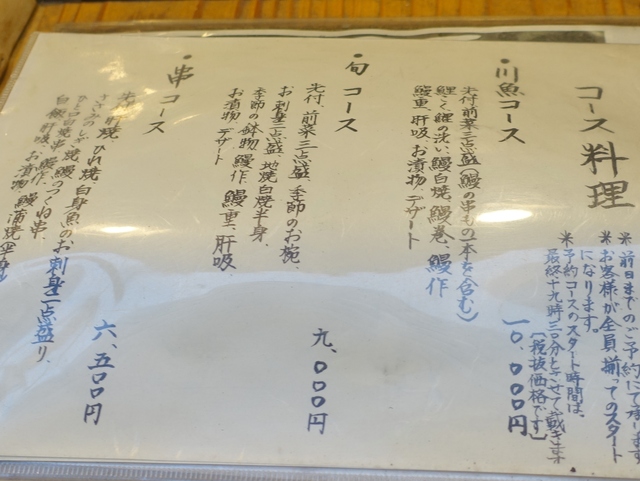 コース料理
※前日までのご予約にて承ります
※お客様が全員揃ってのスタート
になります。
※予約コースのスタート時間は、
最終十九時三〇分とさせて戴きます
(税抜価格です)
・川魚コース 一〇、〇〇〇円
先付、前菜三点盛(鰻の串もの一本を含む)
鯉こく、鯉の洗い、鰻白焼、鰻巻、鰻作
鰻重、肝吸、お漬物、デザート
・旬コース 九、〇〇〇円
先付、前菜三点盛、季節のお椀、
お刺身三点盛、地焼白焼半身、
季節の鉢物、鰻作、鰻重、肝吸、
お漬物、デザート
・串コース 六、五〇〇円
先付、肝焼、ひれ焼、白身魚のお刺身二点盛り、
焼、鰻のつくね串、
白板、肝吸、お漬物、鰻蒲焼